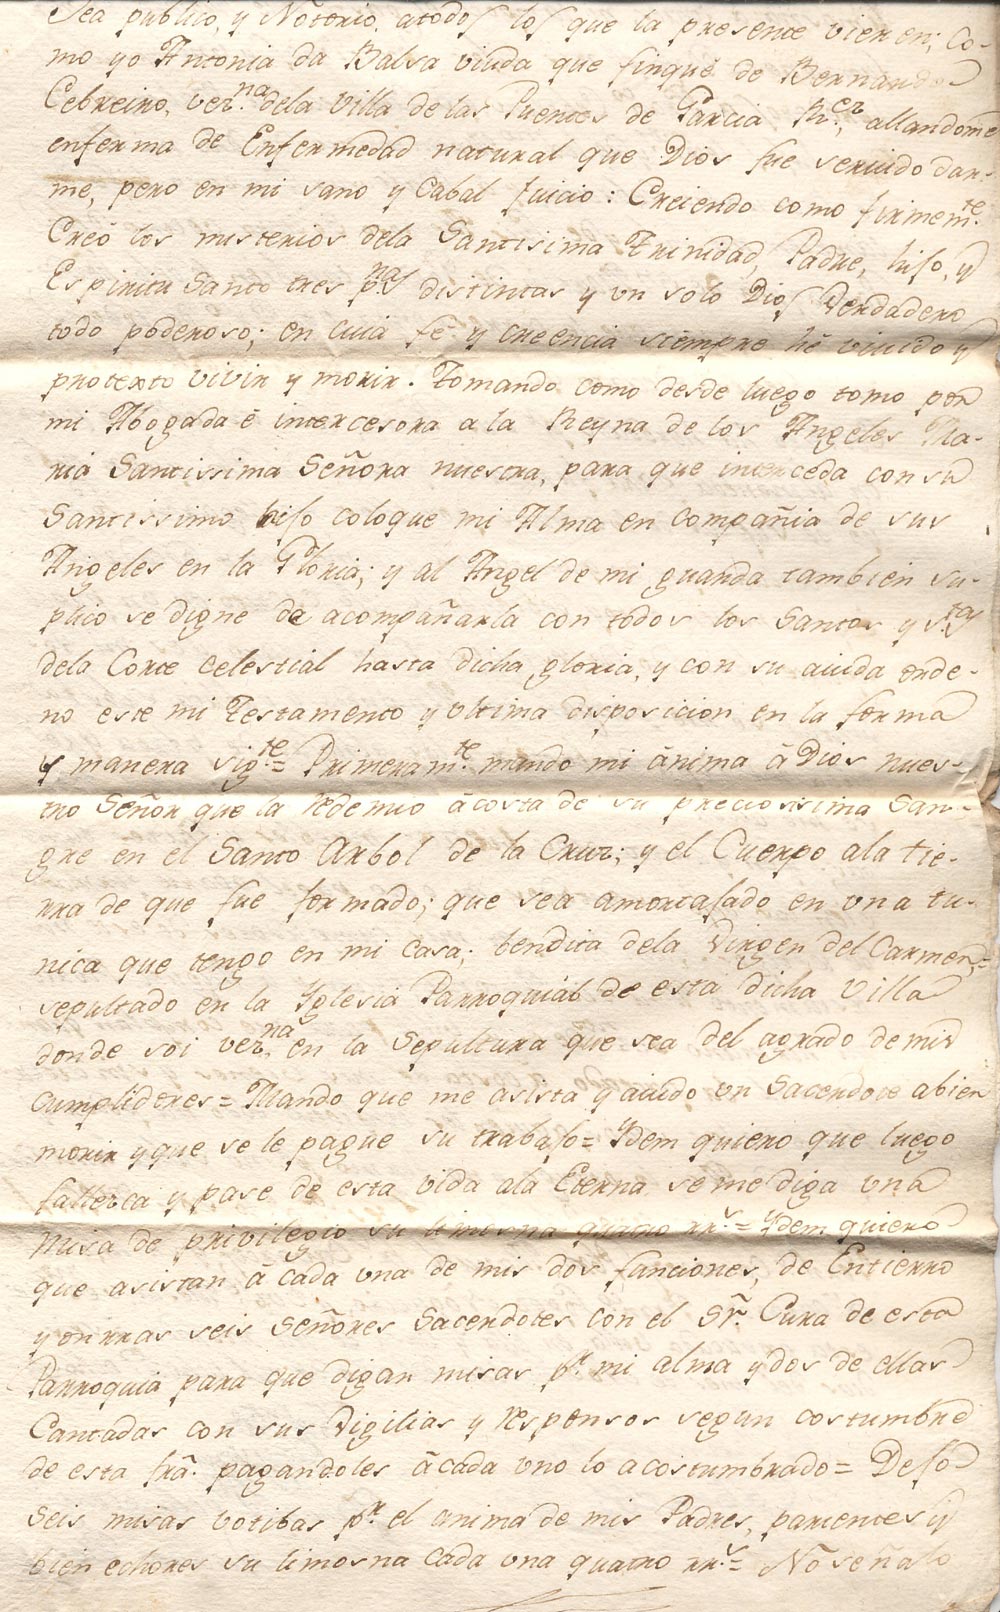 Sea publico, y Nottorio, atodos los que la presente vieren; Co-
mo yo Antonia da Balsa viuda que finqué de Bernardo
Cebreiro, vez.na dela Villa de las Puentes de Garcia Rz.; allandome
enferma de Enfermedad natural que Dios fue servido dar-
me, pero en mi sano y Cabal Juicio: Creiendo como firmem.te
Creó los misterios dela Santisima Trinidad, Padre, hijo, y
Espiritu Santo tres p.nas distintas y un solo Dios Verdadero
todo poderoso; en cuia fé y creencia siempre hé vivido y
protexto vivir y morir. Tomando como desde luego tomo por
mi Abogada é intercesora a la Reyna de los Angeles Ma-
ria Santissima Señora nuestra, para que interceda con su
Santissimo hijo coloque mi Alma en compañia de sus
Angeles en la Gloria; y al Angel de mi guarda tambien su-
plico se digne de acompañarla con todos los Santos y s.tas
dela Corte Celestial hasta dicha gloria, y con su aiuda orde-
no este mi Testamento y ultima disposicion en la forma
y manera sig.te = Primeram.te mando mi ánima á Dios nues-
tro Señor que la redemio ácosta de su preciosisima San-
gre en el Santo Arbol de la Cruz; y el Cuerpo ala tie-
rra de que fue formado; que sea amortajado en una tu-
nica que tengo en mi casa; bendita dela Virgen del Carmen, =
sepultado en la Yglesia Parroquial de esta dicha Villa
donde soi vez.na en la Sepultura que sea del agrado de mis
cumplidores = Mando que me asista y aiude un Sacerdote abien
morir y que se le pague su trabajo = Ydem quiero que luego
fallezca y pase de esta vida ala Eterna se me diga una
misa de privilegio su limosna quatro rr.s = Ydem quiero
que asistan á cada una de mis dos funciones, de Entierro
y onrras seis Señores Sacerdotes con el Sr. Cura de esta
Parroquia para que digan misas p.r mi alma y dos de ellas
Cantadas con sus Vigilias y responsos segun costumbre
de esta fra. pagandoles ácada uno lo acostumbrado = Dejo
seis misas votibas p.r el anima de mis Padres, parientes y
bien echores su limosna cada una quatro rr.s = No señalo